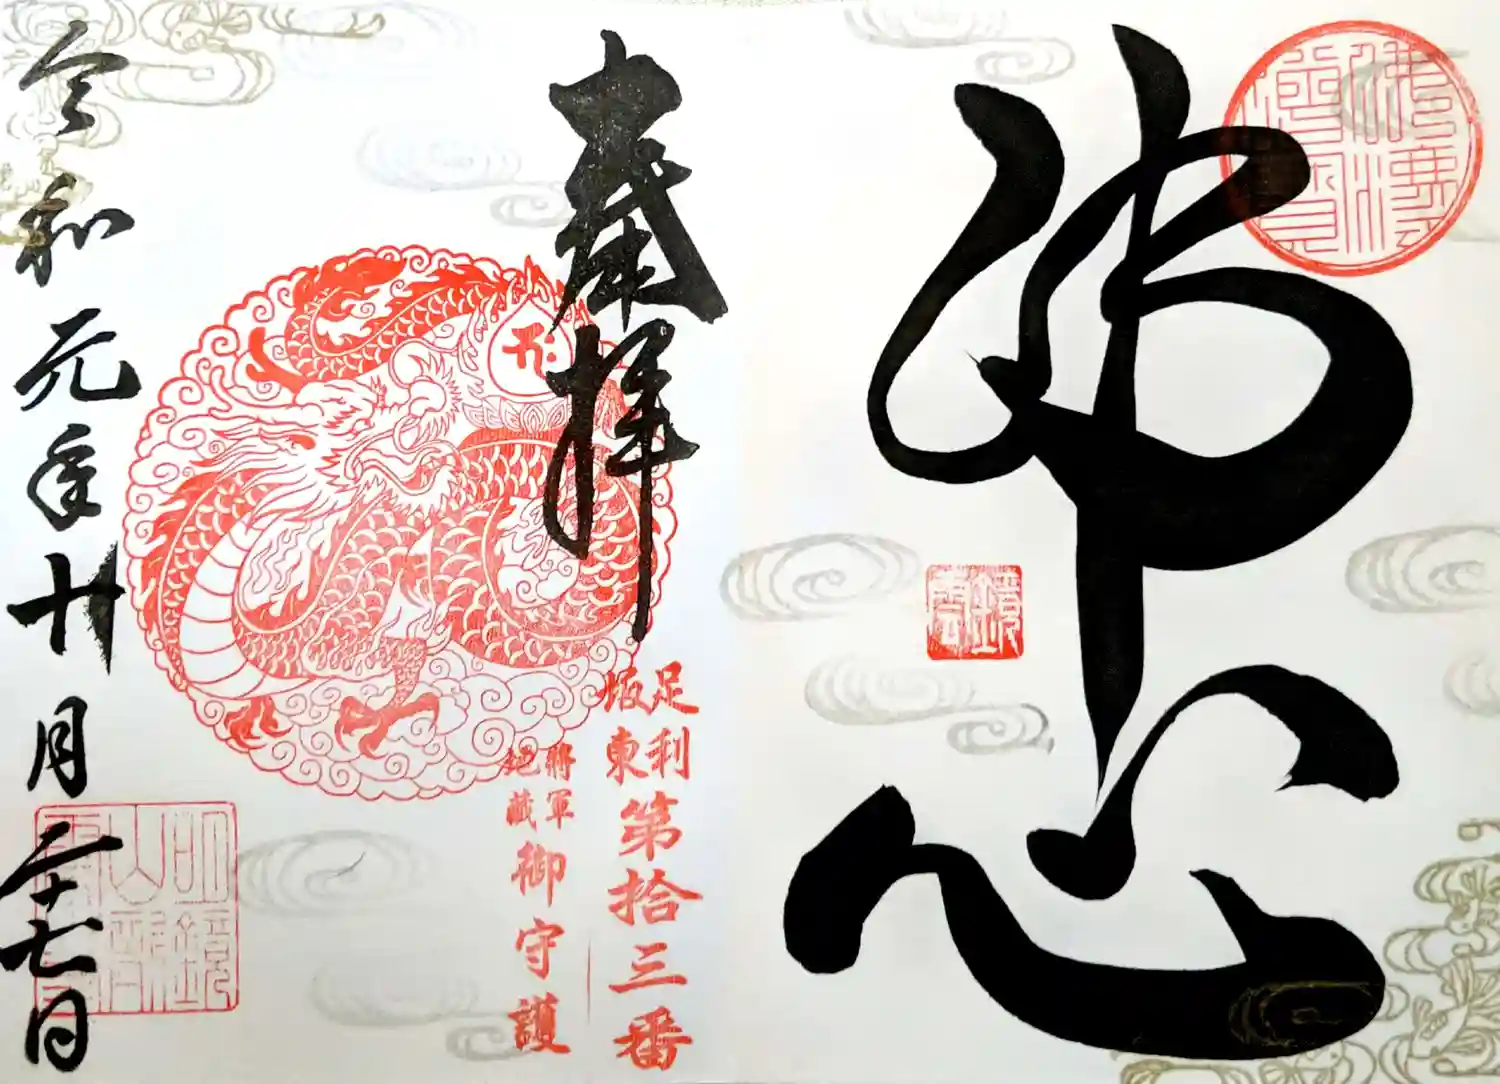 佛心
鏡雲
奉拜
足利
坂東
第拾三番
將軍
地藏
御守護
令和元年十一月二十七日